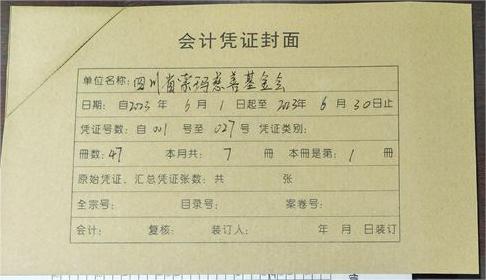 会计凭证封面
单位名称：四川省索玛慈善基金会
日期：自2023年 6月 1日起至 2023年 6月 30日止
凭证号数：自 001 号至 027号 凭证类别：
册数：47 本月共 7 册 本册是第 1 册
原始凭证、汇总凭证张数：共 张
全宗号： 目录号： 案卷号：
会计： 复核： 装订人： 年 月 日装订